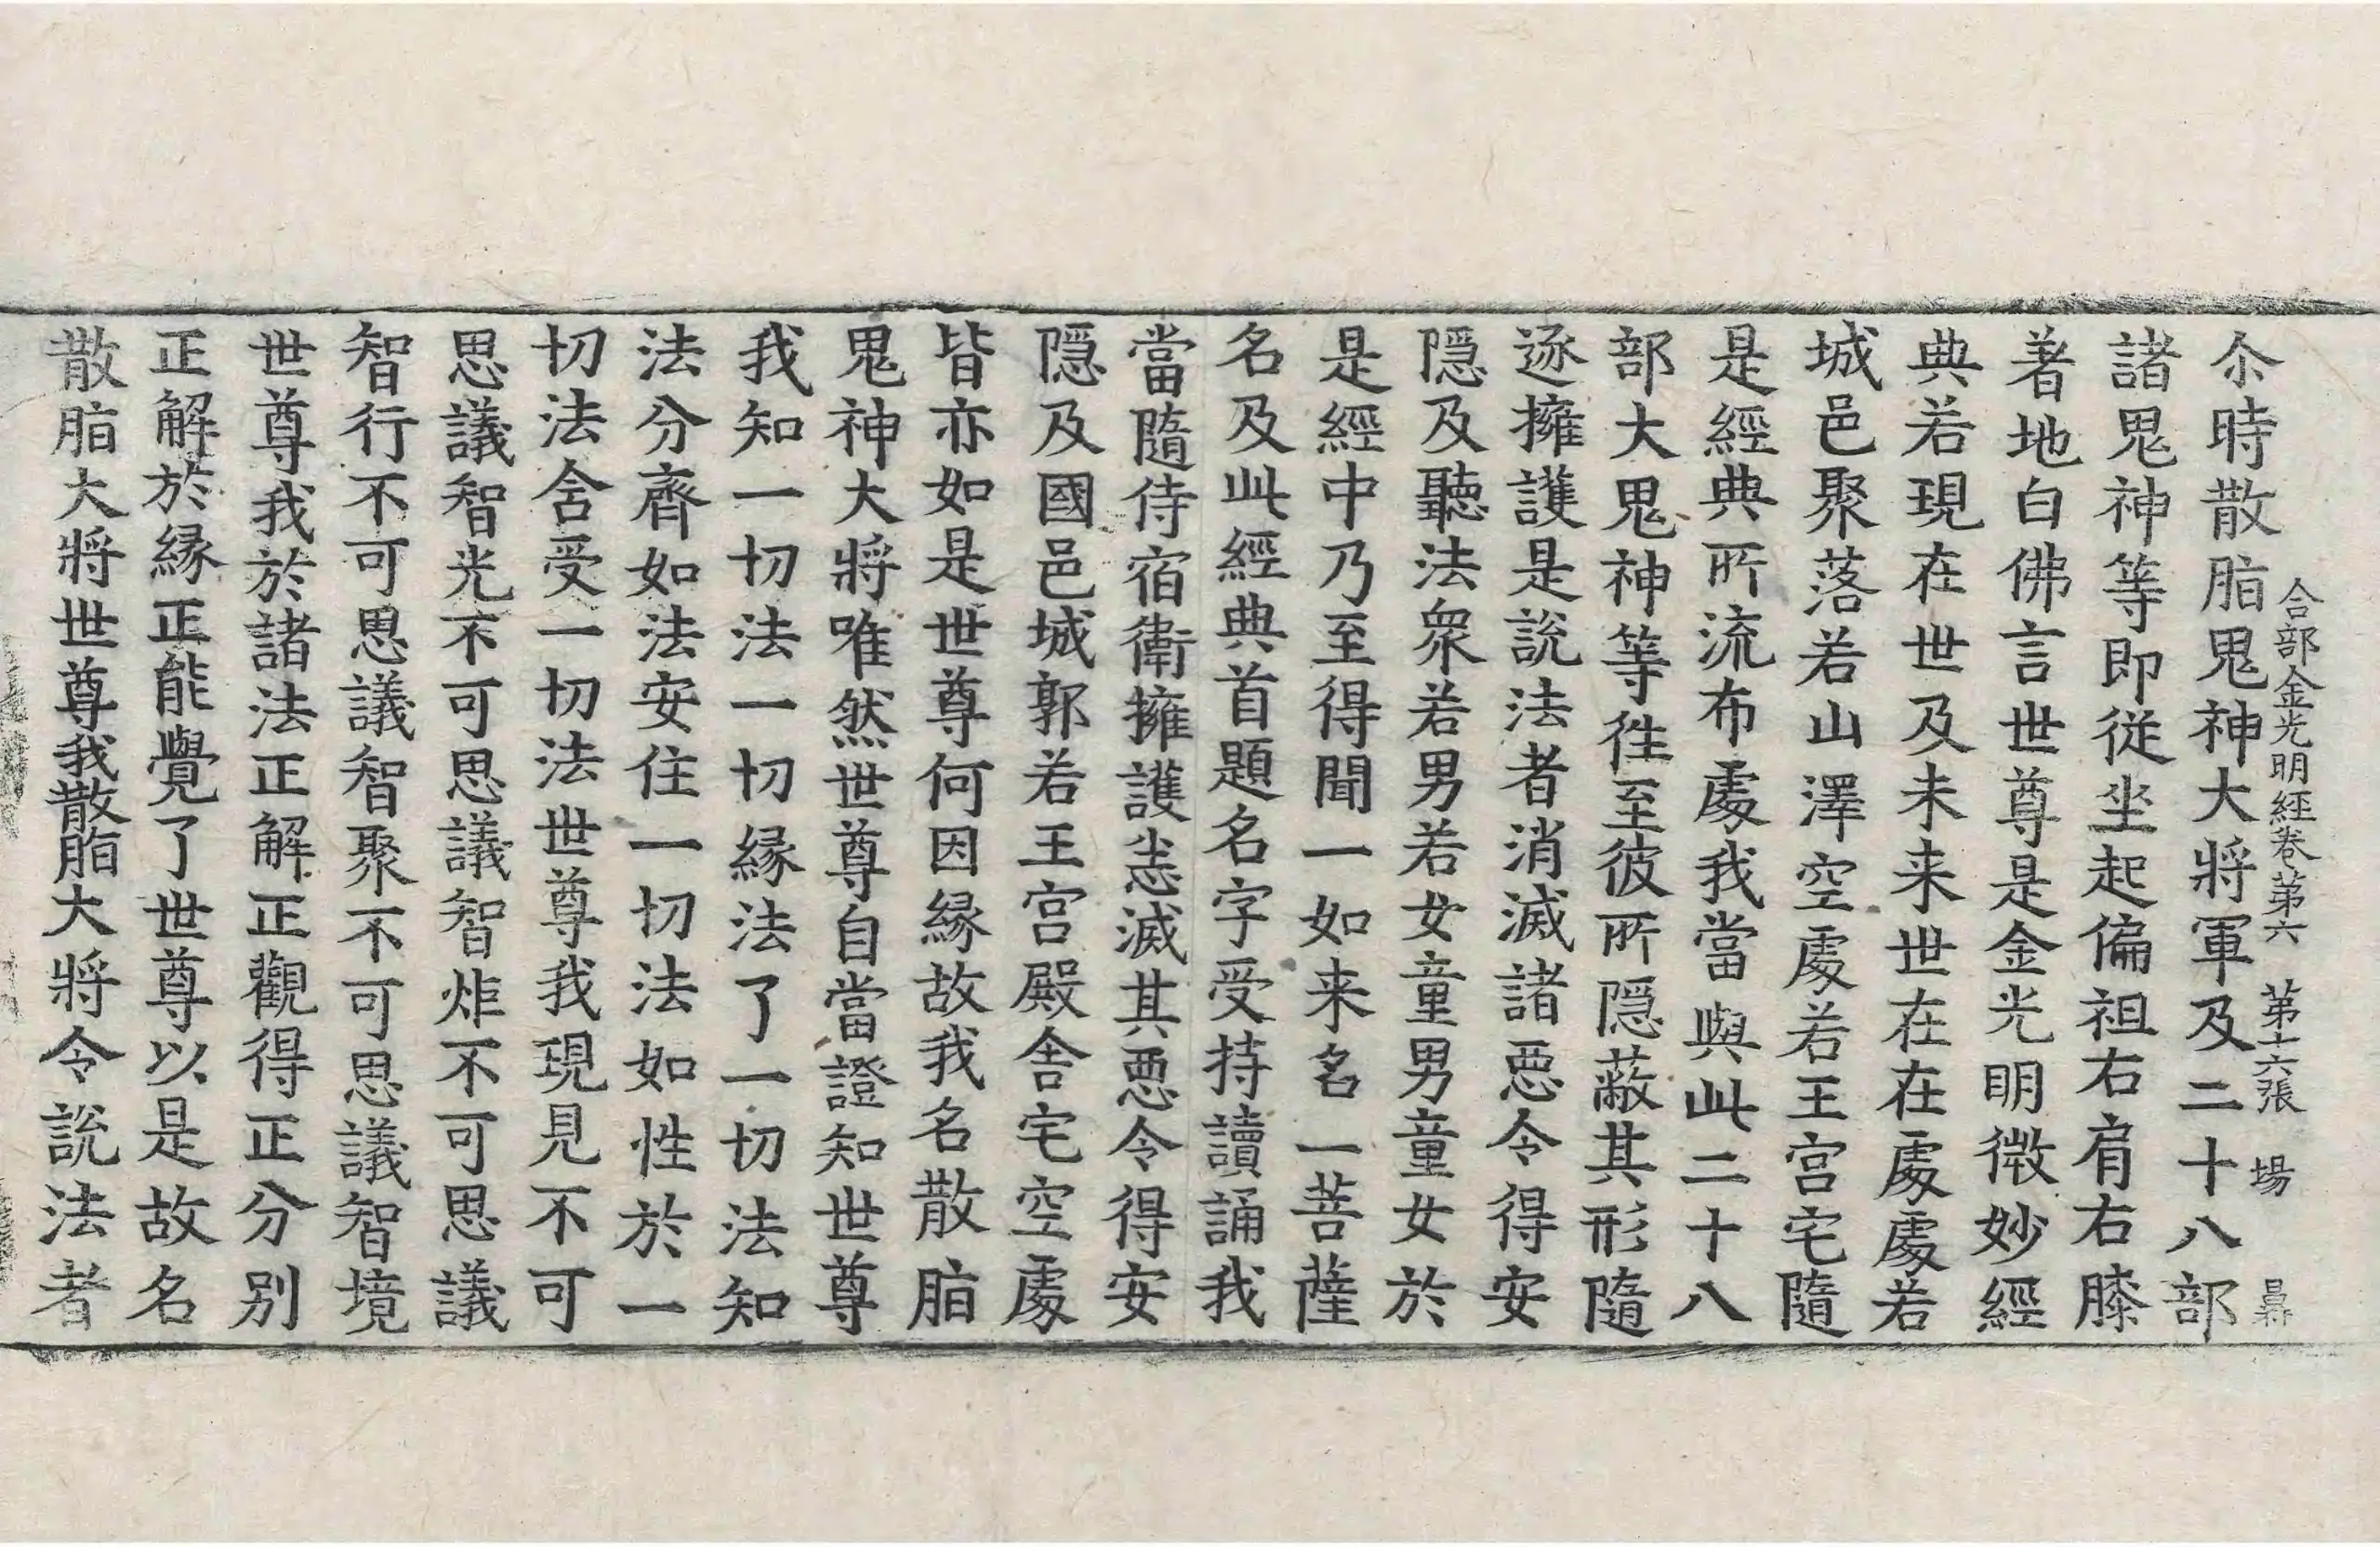 合部金光明經卷第六 第十六張 場 㝵
尒時散脂鬼神大將軍及二十八部
諸鬼神等即從坐起偏袒右肩右膝
著地白佛言世尊是金光明微妙經
典若現在世及未来世在在處處若
城邑聚落若山澤空處若王宮宅隨
是經典所流布處我當與此二十八
部大鬼神等徃至彼所隱蔽其形隨
逐擁護是說法者消滅諸惡令得安
隱及聽法衆若男若女童男童女於
是經中乃至得聞一如来名一菩薩
名及此經典首題名字受持讀誦我
當隨侍宿衛擁護悉滅其惡令得安
隱及國邑城郭若王宮殿舍宅空處
皆亦如是世尊何因緣故我名散脂
鬼神大將唯然世尊自當證知世尊
我知一切法一切緣法了一切法知
法分齊如法安住一切法如性於一
切法含受一切法世尊我現見不可
思議智光不可思議智炬不可思議
智行不可思議智聚不可思議智境
世尊我於諸法正解正觀得正分別
正解於緣正能覺了世尊以是故名
散脂大將世尊我散脂大將令說法者